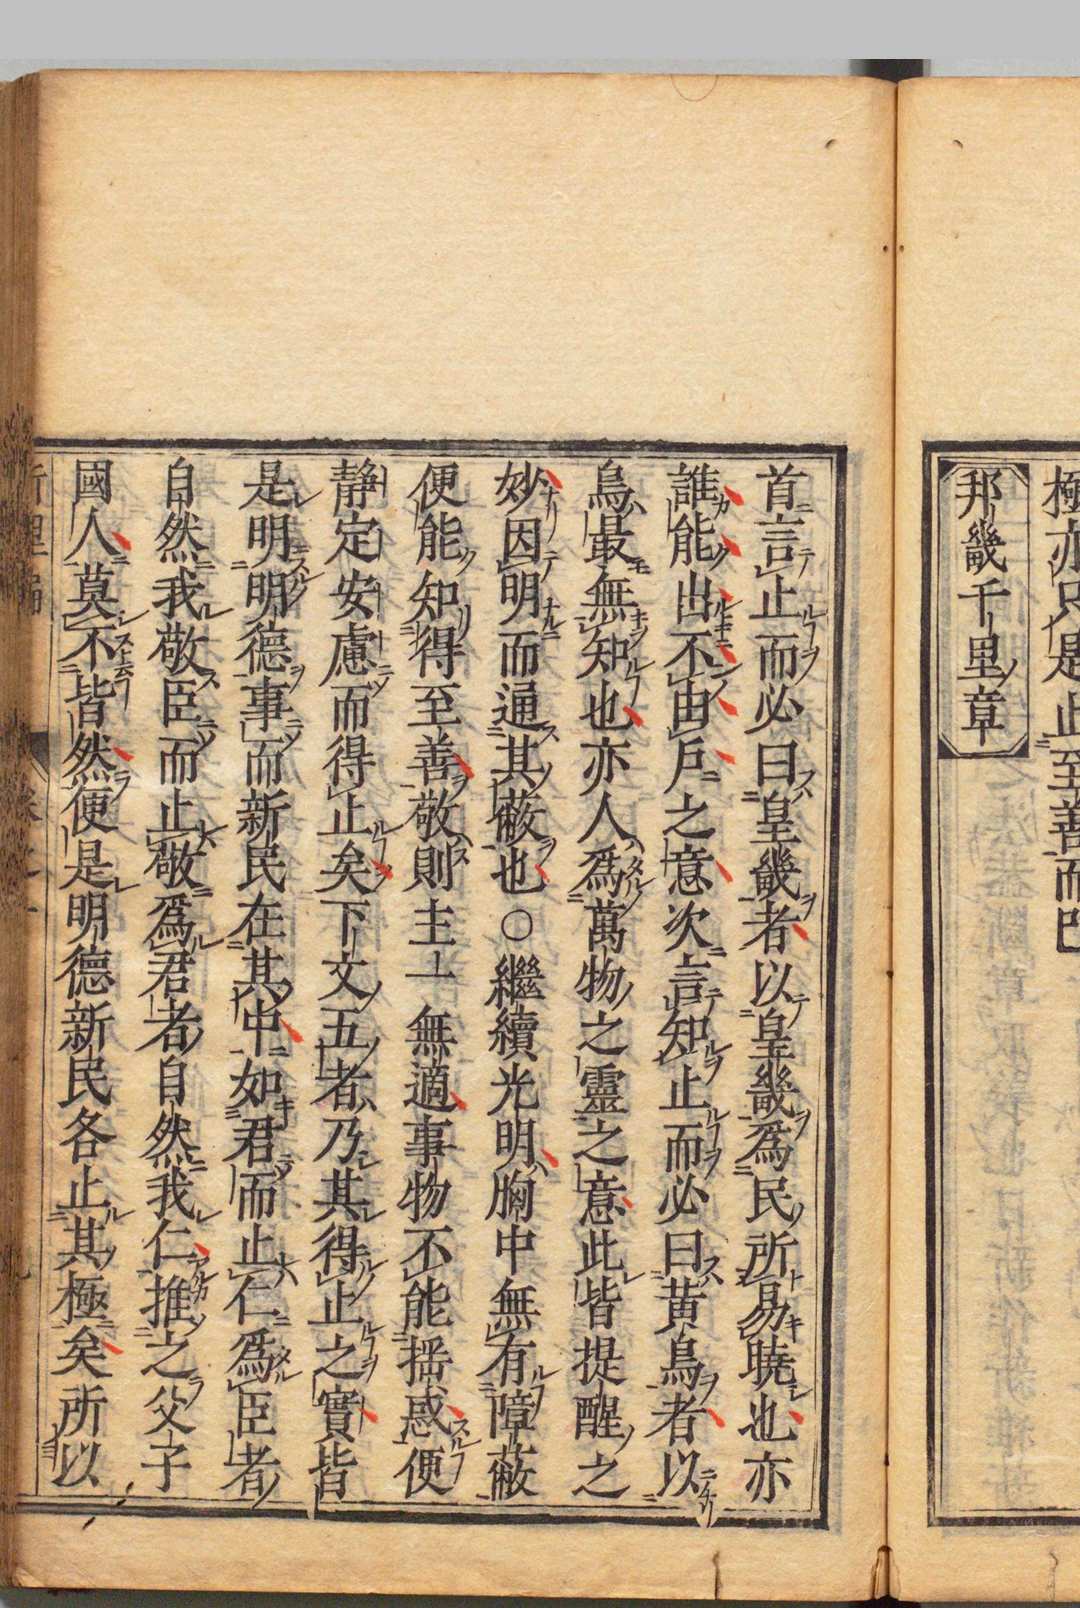 極亦只是止至善而已
邦畿千里章
首言止而必曰皇畿者以皇畿爲民所易曉也亦
誰能出不由戶之意次言知止而必曰黄鳥者以
鳥最無知也亦人爲萬物之靈之意此皆提醒之
妙因明而通其蔽也○繼續光明胸中無有障蔽
便能知得至善敬則主一無適事物不能搖惑便
静定安慮而得止矣下文五者乃其得止之實皆
是明明德事而新民在其中如君而止仁爲臣者
自然我敬臣而止敬爲君者自然我仁推之父子
國人莫不皆然便是明德新民各止其極矣所以